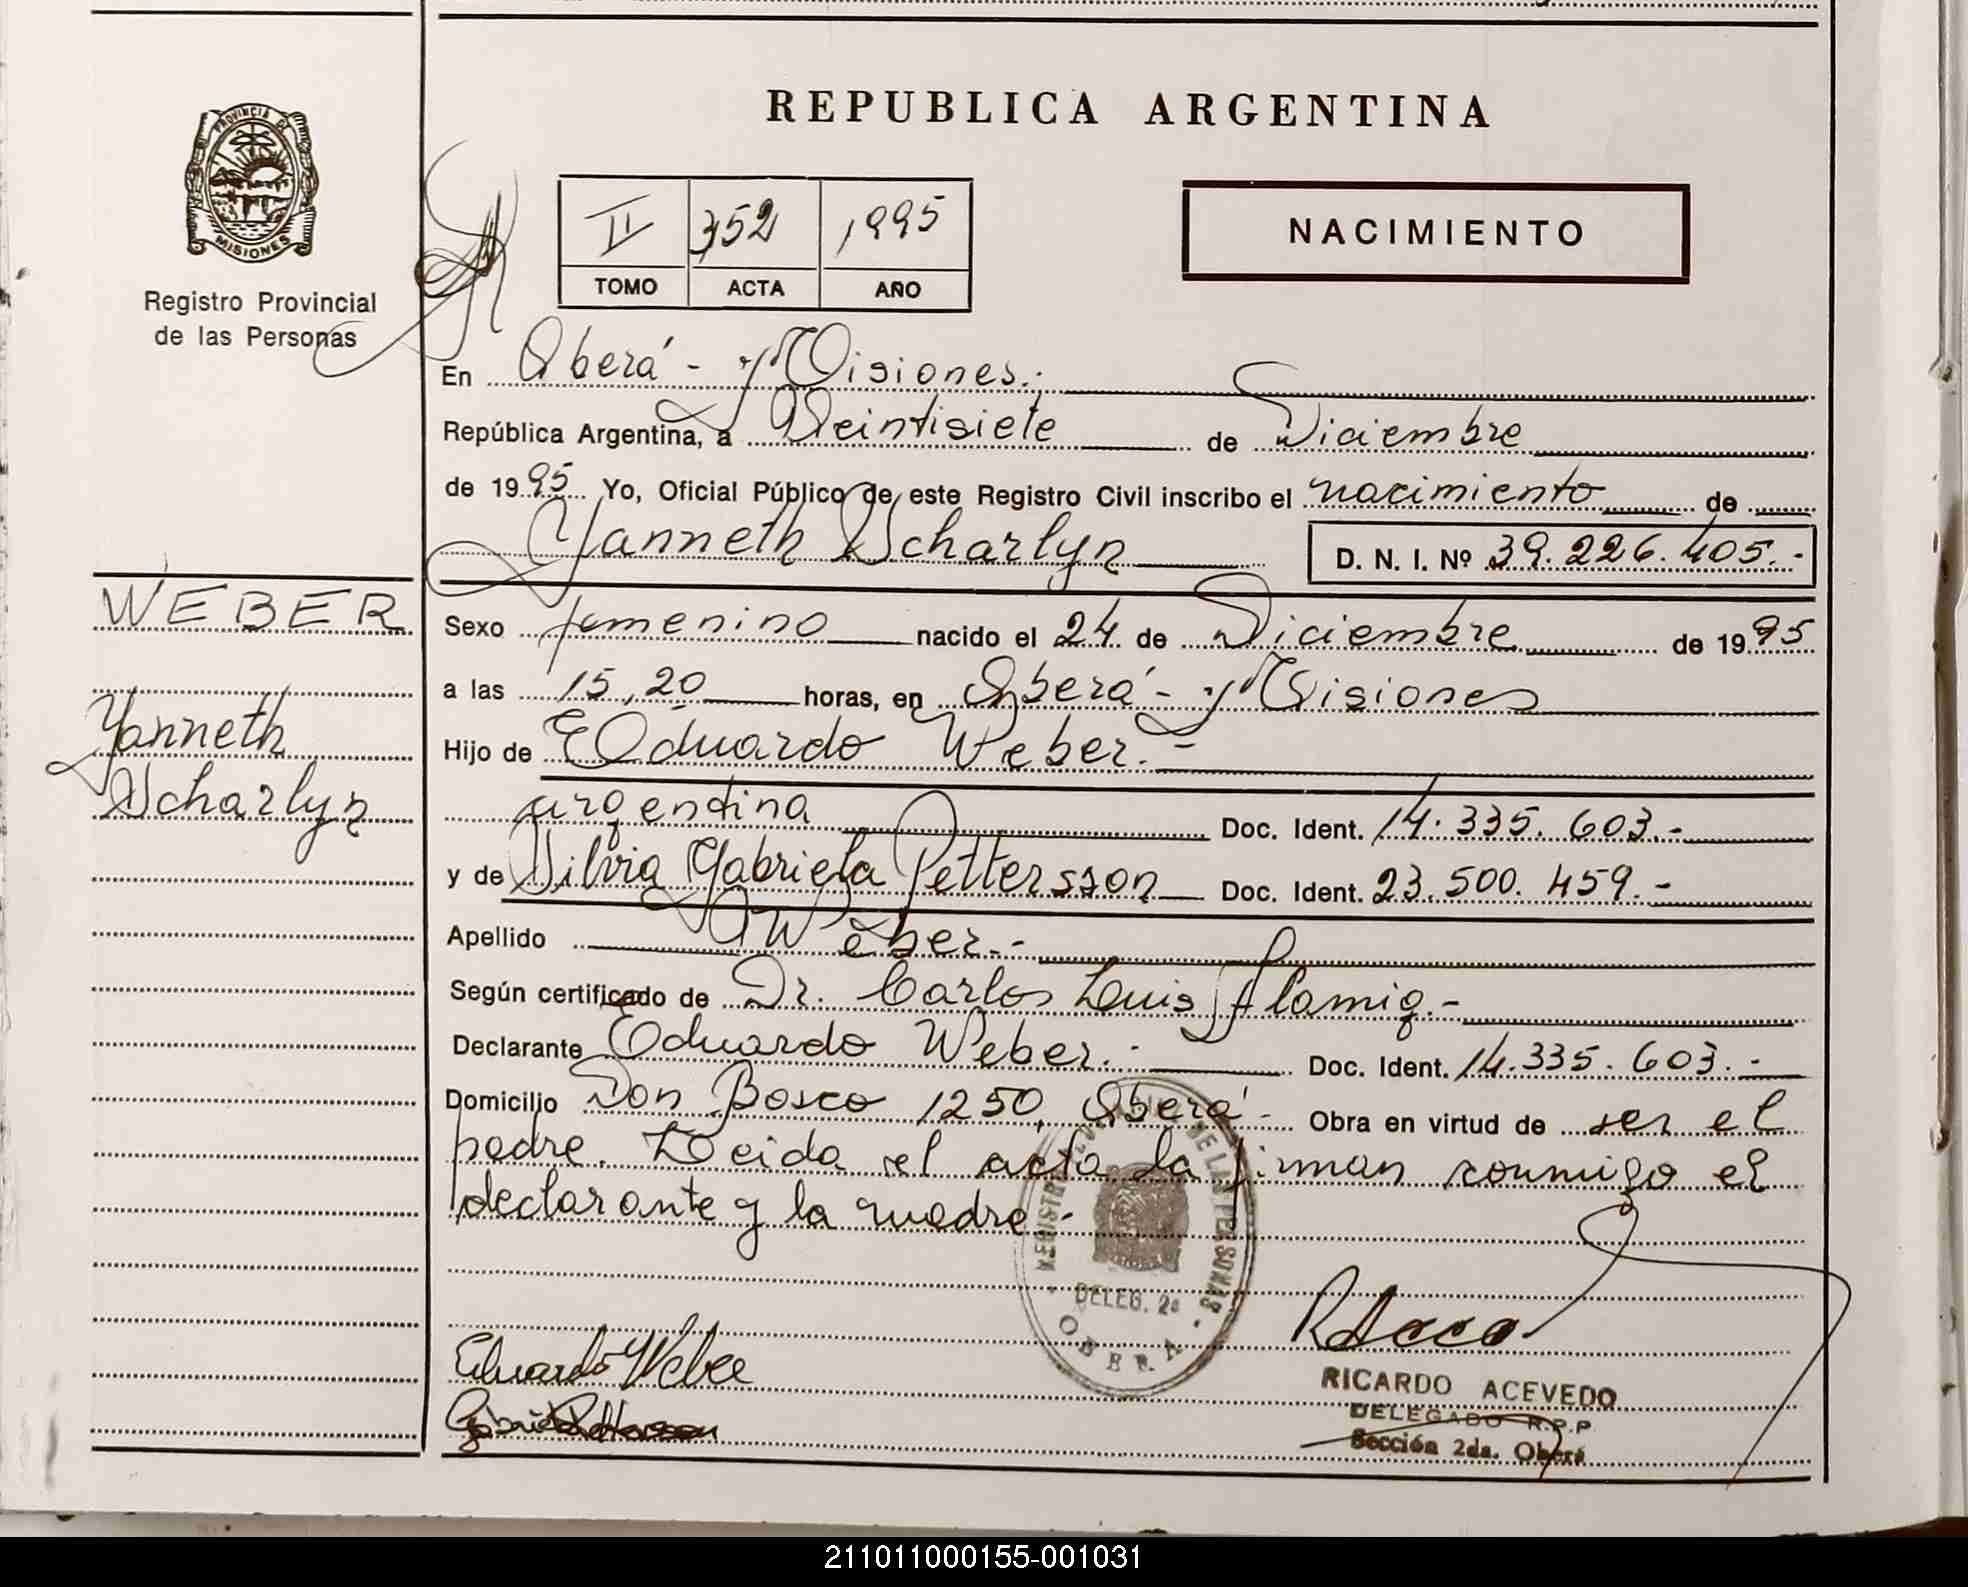 PROVINCIA DE
MISIONES
Registro Provincial
de las Personas
WEBER
Yanneth
Scharlyn
REPUBLICA ARGENTINA
II 352 1995
TOMO ACTA AÑO
NACIMIENTO
En Oberá - Misiones.-
República Argentina, a Veintisiete de Diciembre
de 1995 Yo, Oficial Público de este Registro Civil inscribo el nacimiento de
Yanneth Scharlyn D. N. I. Nº 39.226.405.-
Sexo femenino nacido el 24 de Diciembre de 1995
a las 15,20 horas, en Oberá - Misiones
Hijo de Eduardo Weber.-
argentina Doc. Ident. 14.335.603.-
y de Silvia Gabriela Pettersson Doc. Ident. 23.500.459.-
Apellido Weber.-
Según certificado de Dr. Carlos Luis Flamig.-
Declarante Eduardo Weber.- Doc. Ident. 14.335.603.-
Domicilio Don Bosco 1250, Oberá - Obra en virtud de ser el
padre. Leida el acta la firman conmigo el
declarante y la madre.-
DE LAS PERSONAS
DELEG. 2ª
OBERA
Eduardo Weber
RICARDO ACEVEDO
DELEGADO R.P.P
Sección 2da. Oberá
211011000155-001031